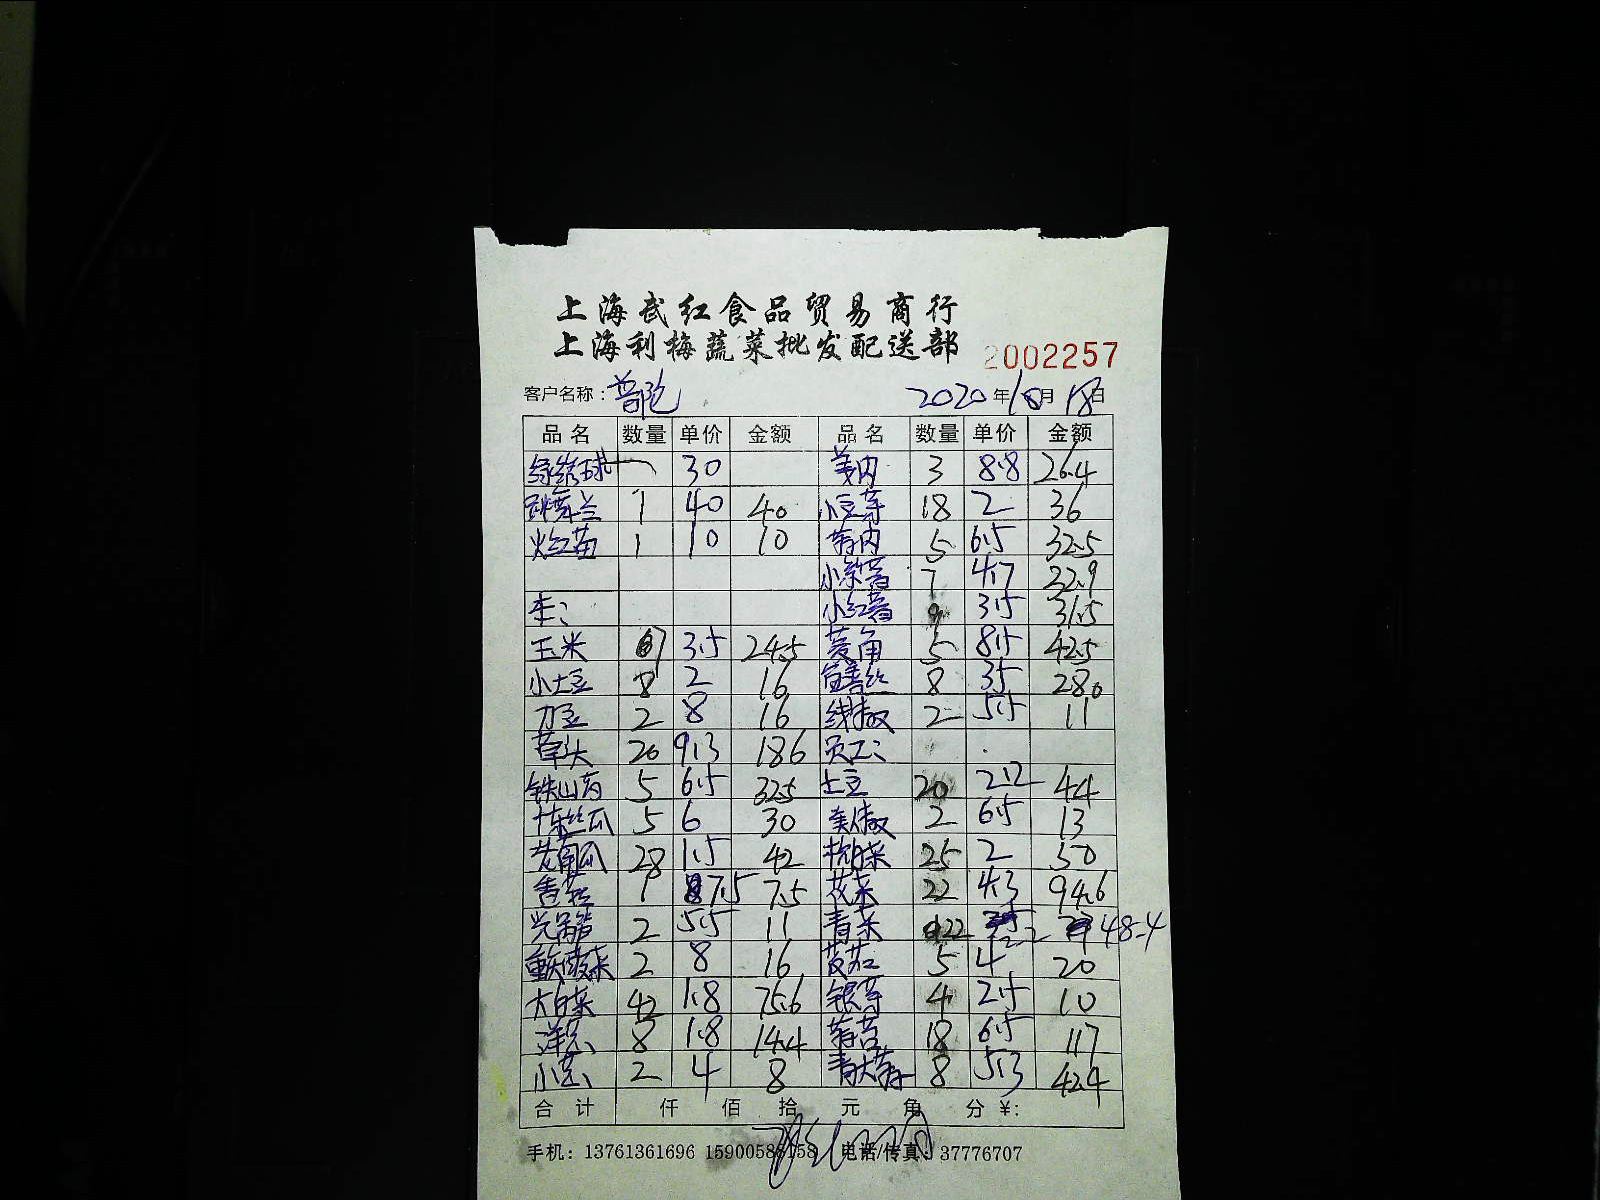 上海武红食品贸易商行
上海利梅蔬菜批发配送部
2002257
客户名称：普陀 2020年10月18日
品名 数量 单价 金额 品名 数量 单价 金额
绿绣球 30 姜肉 3 8.8 26.4
跳舞兰 1 40 40 小豆芽 18 2 36
火红苗 1 10 10 莴肉 5 6.5 32.5
小紫薯 7 4.7 32.9
小红薯 9 3.5 31.5
玉米 7 3.5 24.5 菱角 5 8.5 42.5
小土豆 8 2 16 8 35 280
刀豆 2 8 16 线椒 2 5.5 11
草头 20 9.3 186 员工：
铁山药 5 6.5 32.5 土豆 20 2.2 44
丝瓜 5 6 30 美人椒 2 6.5 13
黄南瓜 28 1.5 42 杭白菜 25 2 50
香菇 1 7.5 7.5 花菜 22 4.3 94.6
2 5.5 11 青菜 22 2.2 48.4
2 8 16 茄 5 4 20
大白菜 42 1.8 75.6 银芽 4 2.5 10
洋葱 8 1.8 14.4 莴苣 18 6.5 117
小葱 2 4 8 青大蒜 8 5.3 42.4
合计 仟 佰 拾 元 角 分 ¥:
手机：13761361696 15900586158 电话/传真：37776707